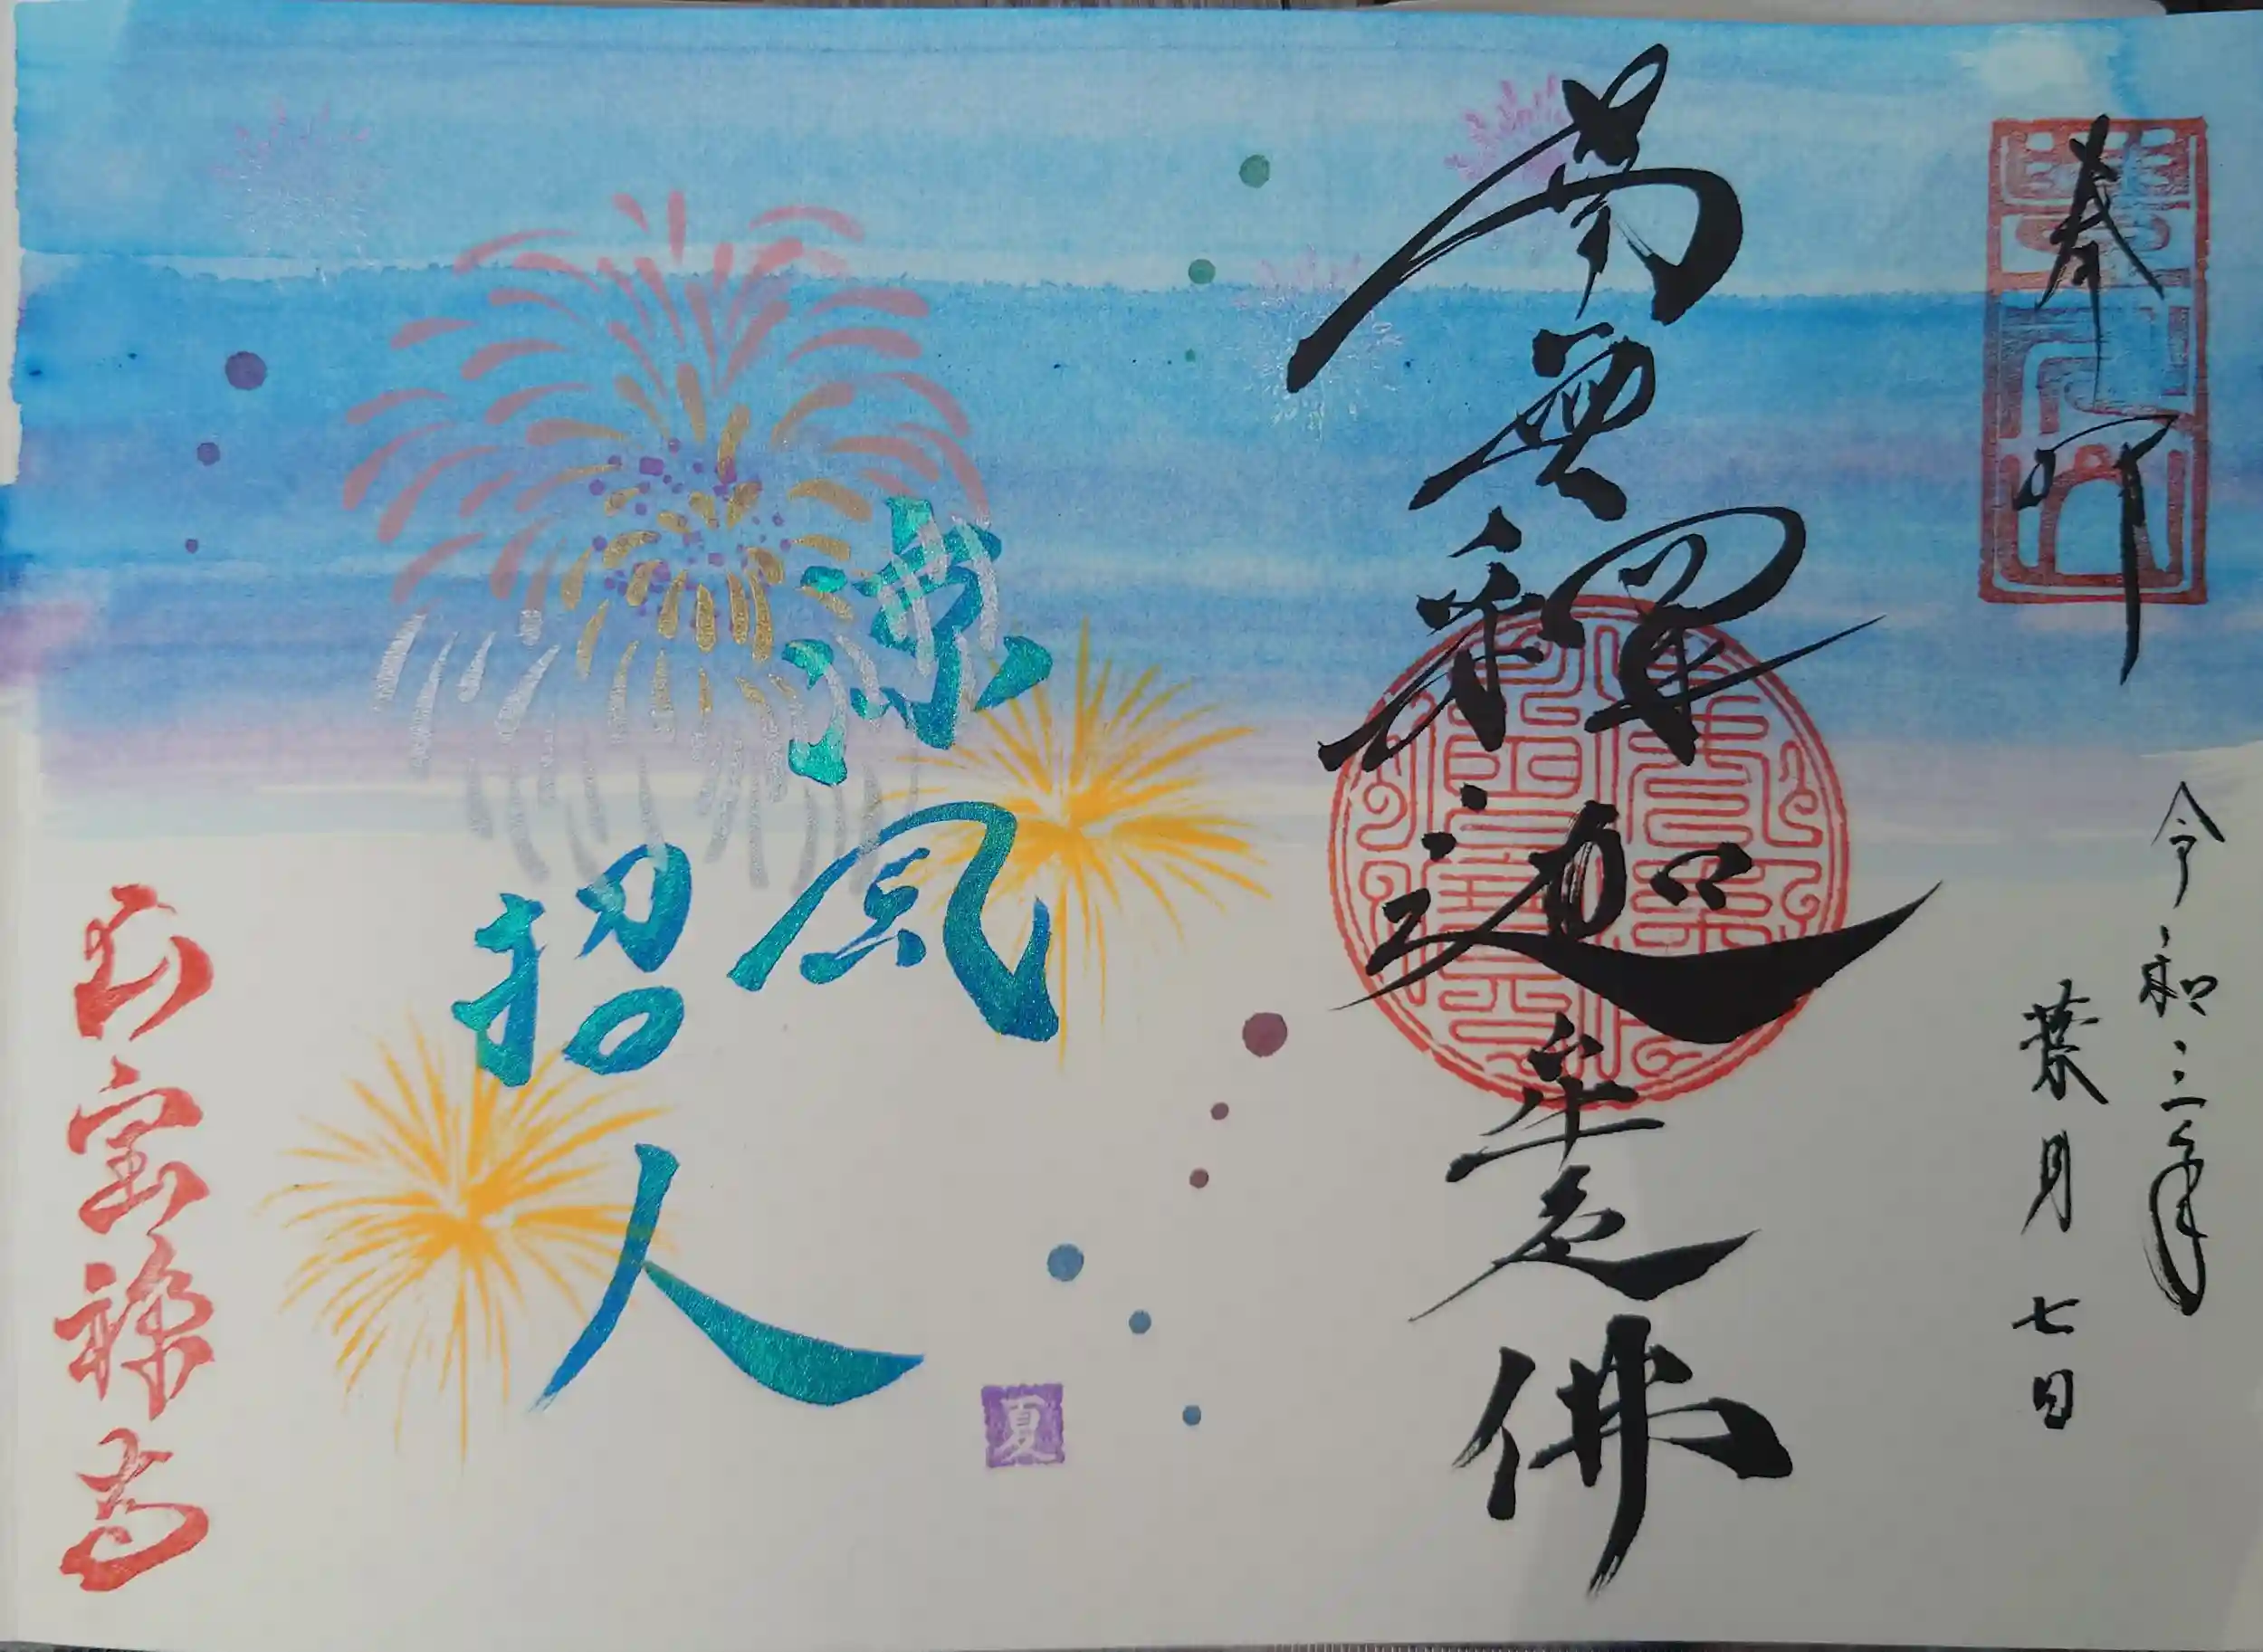 奉
令和三年
葉月七日
南無釋迦牟尼佛
涼風
招人
夏